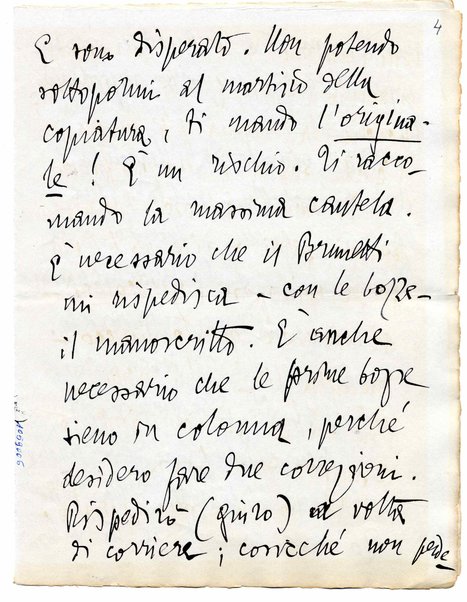 4
E sono disperato. Non potendo
sottopormi al martirio della
copiatura, ti mando l'origina-
le! È un rischio. Ti racco-
mando la massima cautela.
È necessario che il Brunetti
mi rispedisca – con le bozze –
il manoscritto. È anche
necessario che le prime bozze
sieno in colonna, perché
desidero fare due correzioni.
Rispedirò (giuro) a volta
di corriere; cosicché non perde